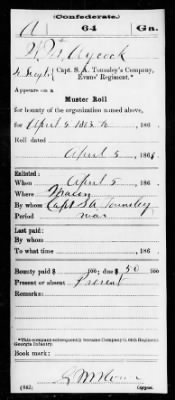 (Confederate.)
A 64 Ga.
W. W. Aycock
Capt. S. A. Townsley's Company,
Evans' Regiment.*
Appears on a
Muster Roll
for bounty of the organization named above,
for April 5 186
Roll dated
April 5, 186
Enlisted:
When April 5, 186 .
Where Macon
By whom Capt SA Townsley
Period war
Last paid:
By whom
To what time , 186 .
Bounty paid $ 100; due $ 50 100
Present or absent Present
Remarks:
*This company subsequently became Company A, 64th Regiment
Georgia Infantry.
Book mark:
(642) Copyist.